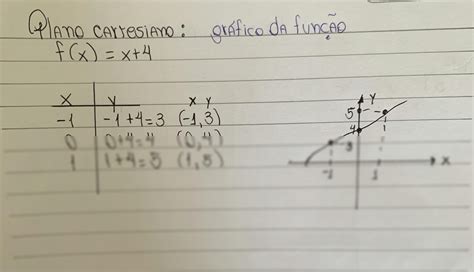 Plano cartesiano: gráfico da função
f(x) = x+4
x y x y
-1 -1+4=3 (-1,3)
0 0+4=4 (0,4)
1 1+4=5 (1,5)
y
5
4
3
-1 1 1 x